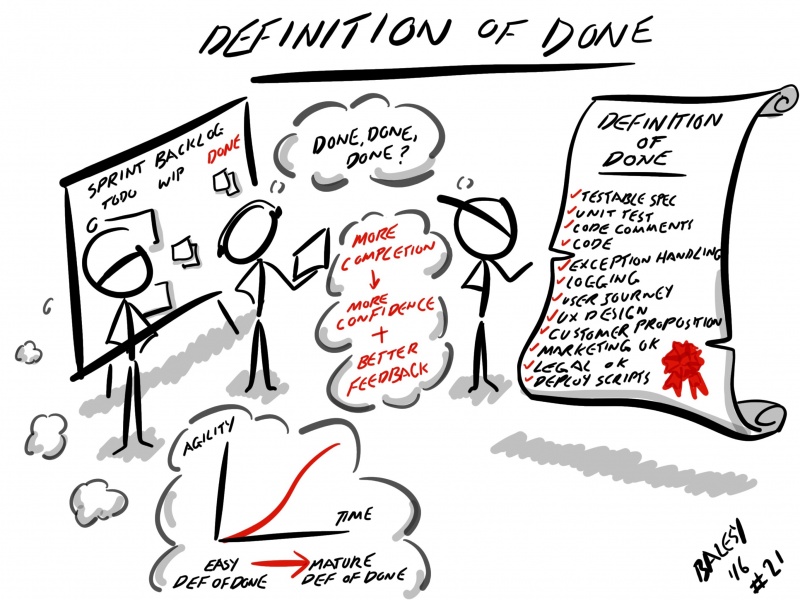 DEFINITION OF DONE
SPRINT BACKLOG
TODO WIP DONE
DONE, DONE,
DONE?
MORE
COMPLETION
MORE
CONFIDENCE
+
BETTER
FEEDBACK
DEFINITION
OF
DONE
TESTABLE SPEC
UNIT TEST
CODE COMMENTS
CODE
EXCEPTION HANDLING
LOGGING
USER JOURNEY
UX DESIGN
CUSTOMER PROPOSITION
MARKETING OK
LEGAL OK
DEPLOY SCRIPTS
AGILITY
TIME
EASY
DEF OF DONE
MATURE
DEF OF DONE
BALESY
'16
#21